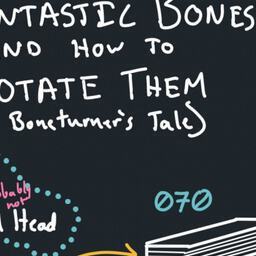 NTASTIC BONES
ND HOW TO
OTATE THEM
Boneturner's Tale)
bably
not
Head
070